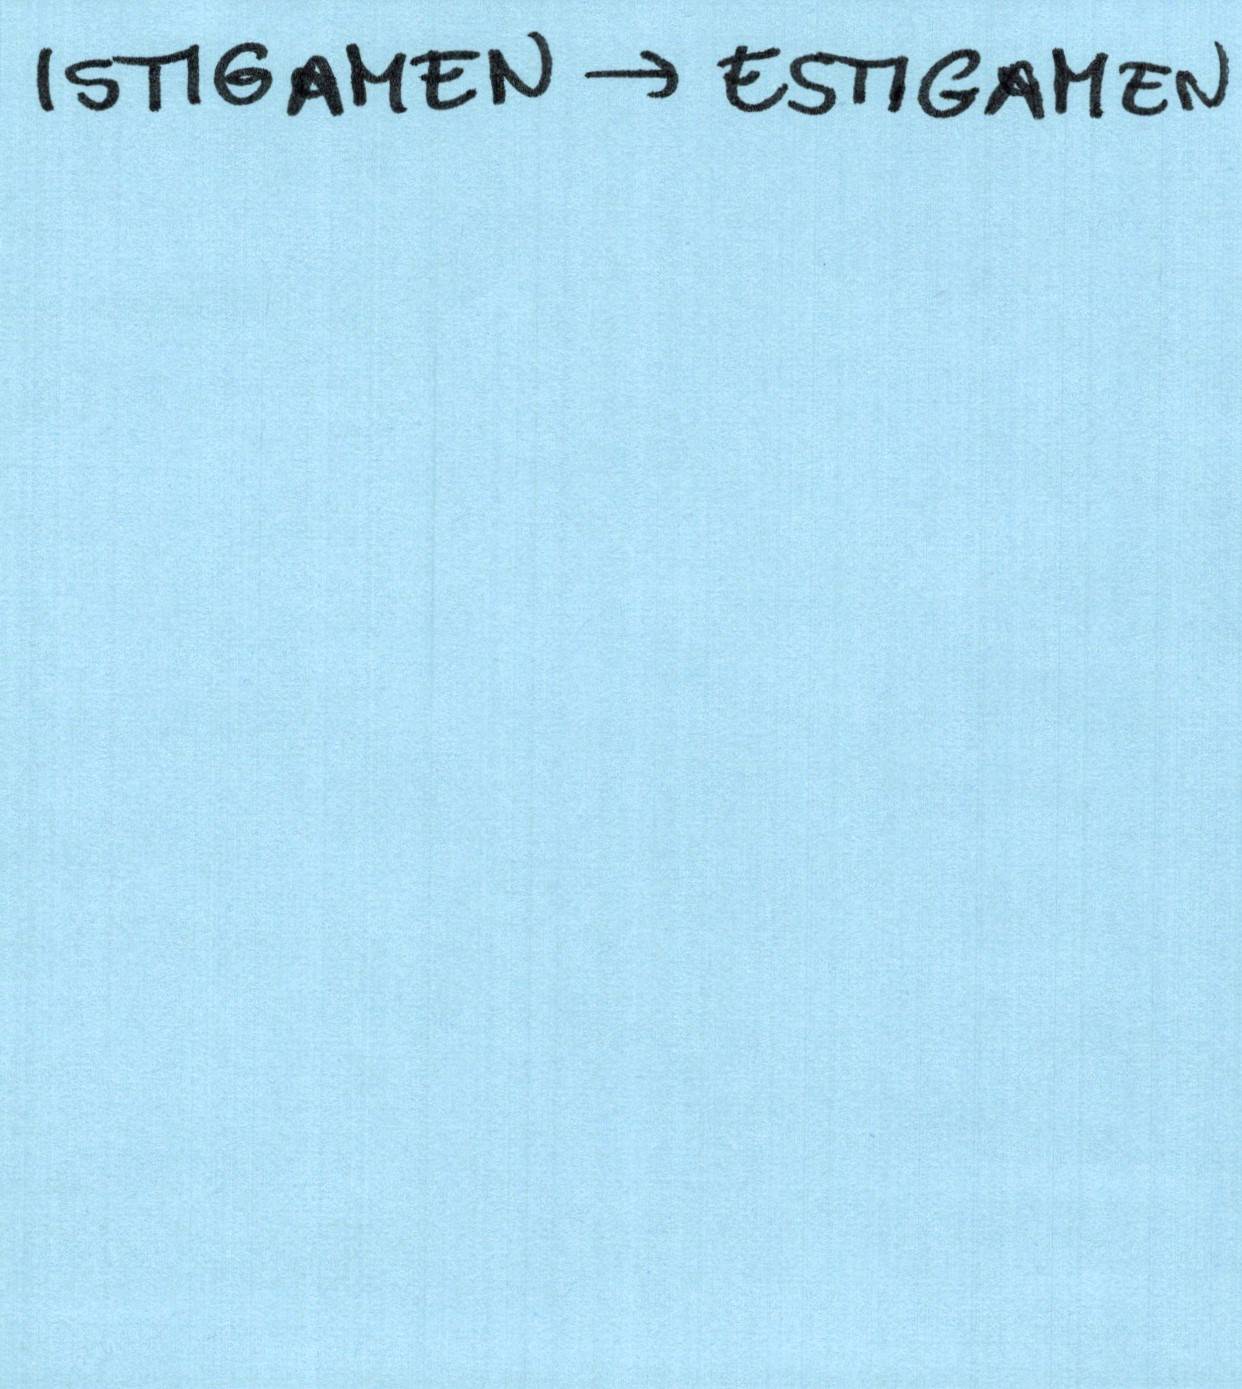 ISTIGAMEN → ESTIGAMEN